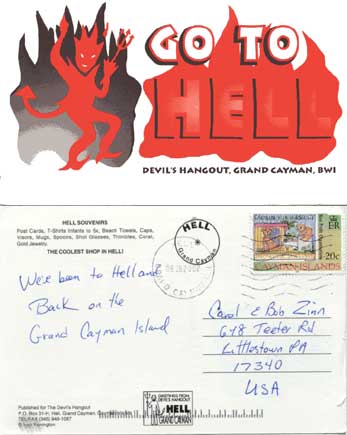 GO TO
HELL
DEVIL'S HANGOUT, GRAND CAYMAN, BWI
HELL SOUVENIRS
Post Cards, T-Shirts Infants to 5x, Beach Towels, Caps,
Visors, Mugs, Spoons, Shot Glasses, Thimbles, Coral,
Gold Jewelry.
THE COOLEST SHOP IN HELL!
HELL
Grand Cayman
20c
CAYMAN ISLANDS
We've been to Hell and
Back on the
Grand Cayman Island
Carol & Bob Zinn
648 Teeter Rd
Littlestown PA
17340
USA
Published for The Devil's Hangout
P.O. Box 31-H, Hell, Grand Cayman,
TEL/FAX (345) 949-1087
GREETINGS FROM
DEVIL'S HANGOUT
HELL
GRAND CAYMAN